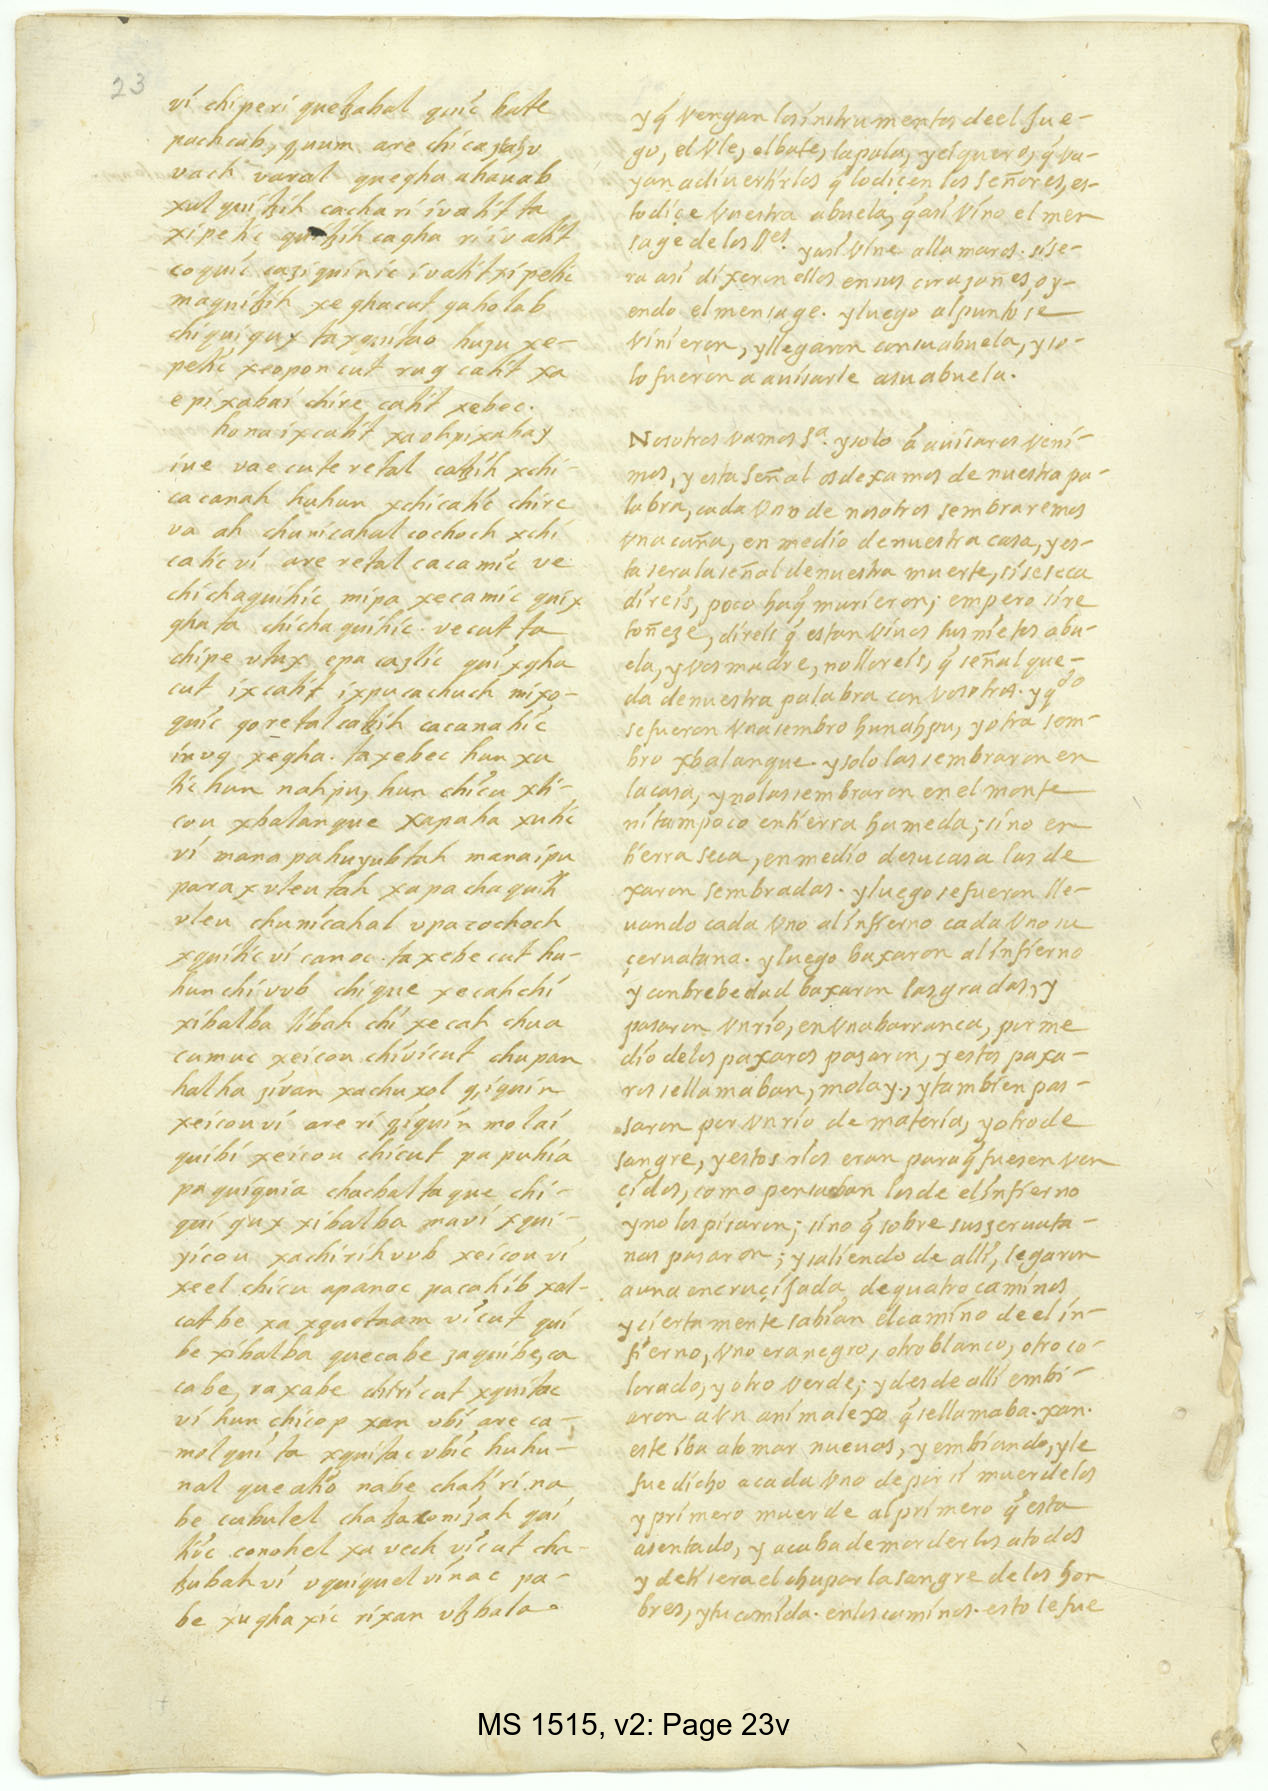 23
ví chiperi quetzabal quic bate
pachcab, quum are chicazaʒu
vach varal quegha ahauab
xul quitzih cachari ivatit ta
xipetic quitzih cagha ri ivatit
coquic caziquinic ivatit xipetic
maquitzih xeghacut qaholab
chiquiqux taxquitao huzu xe-
petic xeopon cut ruq catit xa
epixabai chire catit xebec.
honaixcatit xaohpixabay
iue vaecute retal catzih xchi-
cacanah huhun xchicatic chire
va ah chunicahal cochoch xchi
catic ví are retal cacamic ve
chichaquihic mipa xecamic quix
gha ta chichaquihic. vecut ta
chipe utux epa cazlic quixgha
cut ixcatit ixpucachuch mixo-
quic qoretal catzih cacanahic
inuq xegha. taxebec hun xu
tic hun nahpu, hun chicu xti-
cou xbalanque xapaha xutic
ví mana pahuyubtah manaipu
paraxuleutah xapachaquih
uleu chunicahal upacochoch
xquitic ví canoc. taxebecut hu-
hun chiuub chique xecahchi
xibalba libah chi xecah chua
cumuc xeicou chivicut chupan
halha zivan xachuxol qiquin
xeicouvi are ri qiquin molai
quibi xeicou chicut papuhia
paquiquia chacbaltaque chi-
qui qux xibalba mavi xqui-
yicou xachirihuub xeicouvi
xeel chicu apanoc pacahib xal-
catbe xa xquetaam vicut qui
be xibalba quecabe zaquibe, ca
cabe, raxabe chiricut xquitac
ví hun chicop xan ubi, are ca-
molquita xquitac ubic huhu-
nal queatio nabe chati ri. na
be cubulel chatzaconizah qui
tiic conohel xavech vicut cha-
tzubah ví uquiquel vinac pa-
be xughaxic rixan utzbala.
y q̃ vengan los instrumentos de el fue-
go, el Vle, el bate, la pala, y el quero, q̃ va-
yan a divertirlos q̃ lo dicen los señores, es-
to diçe Vuestra abuela, q̃ asi vino el men
sage de los Ses. y asi vine a llamaros. si se-
ra asi dixeron ellos en sus corazones, oy-
endo el mensage. y luego al punto se
vinieron, y llegaron con su abuela, y so-
lo fueron a avisarle a su abuela.
Nosotros vamos Sa. y solo â avisaros veni-
mos, y esta señal os dexamos de nuestra pa-
labra, cada Vno de nosotros sembraremos
Vna caña, en medio de nuestra casa, y es-
ta sera la señal de nuestra muerte, si se seca
direis, poco ha q̃ murieron; empero si re
toñeze, direis q̃ estan vivos tus nietos abu-
ela, y vos madre, no lloreis, q̃ señal que-
da de nuestra palabra con vosotros. y qdo
se fueron Vna sembro hunahpu, y otra sem-
bro xbalanque. y solo las sembraron en
la casa, y no las sembraron en el monte
ni tampoco en tierra humeda; sino en
tierra seca, en medio de su casa las de
xaron sembradas. y luego se fueron lle-
uando cada Vno al infierno cada Vno su
çeruatana. y luego baxaron al infierno
y con brebedad baxaron las gradas, y
pasaron Vn río, en Vna barranca, por me
dio de los paxaros pasaron, y estos paxa-
ros se llamaban, molay., y tambien pas-
saron por Vn río de materia, y otro de
sangre, y estos ríos eran para q̃ fuesen ven
çidos, como pensaban los de el infierno
y no los pisaron; sino q̃ sobre sus zeruata-
nas pasaron; y saliendo de alli, legaron
a una encruçijada, de quatro caminos
y ciertamente sabían el camino de el in-
fierno, Vno era negro, otro blanco, otro co-
lorado, y otro verde; y desde alli embi-
aron a Vn animalexo q̃ se llamaba. xan.
este iba a tomar nuevas, y embiando, y le
fue dicho a cada Vno de por si muerdelos
y primero muerde al primero q̃ esta
asentado, y acaba de morderlos a todos
y de ti sera el chupar la sangre de los hom
bres, y tu comida. en los caminos. esto le fue
MS 1515, v2: Page 23v